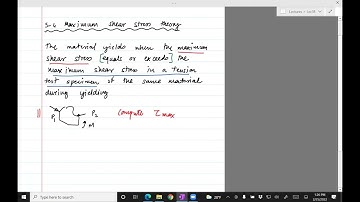 5-4 Maximum shear stress theory
The material yields when the maximum
shear stress [equals or exceeds] the
maximum shear stress in a tension
test specimen of the same material
during yielding
P1 P2 M Compute τmax
Type here to search
1:26 PM